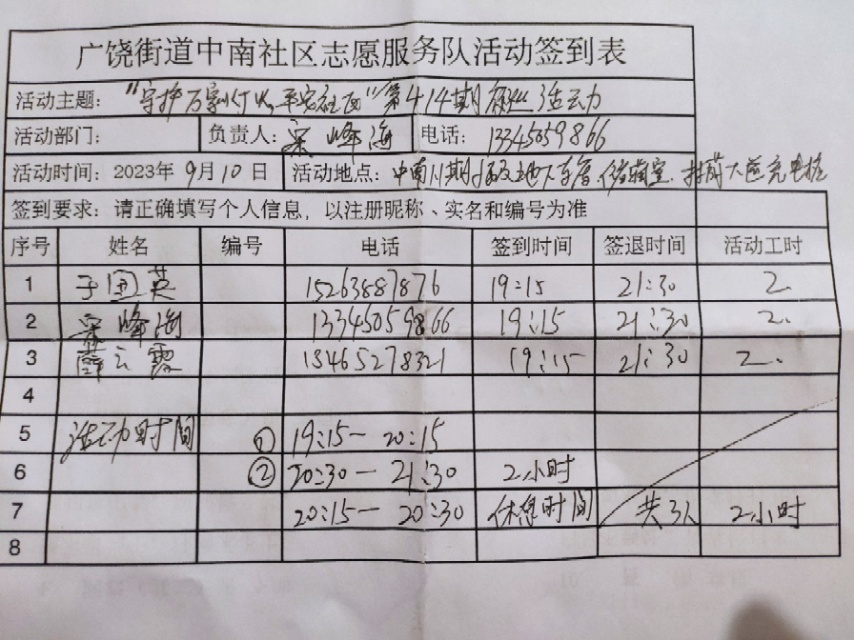 广饶街道中南社区志愿服务队活动签到表
活动主题： "守护万家灯火 平安社区"第414期 活动
活动部门： 负责人： 峰海 电话：
活动时间：2023年 9月 10 日 活动地点：中南 期 地下车库 储藏室
签到要求：请正确填写个人信息，以注册昵称、实名和编号为准
序号 姓名 编号 电话 签到时间 签退时间 活动工时
1 于国英 15263887876 19:15 21:30 2.
2 峰海 19:15 21:30 2.
3 薛云霞 13465278321 19:15 21:30 2.
4
5 活动时间 ① 19:15— 20:15
6 ② 20:30 — 21:30 2小时
7 20:15— 20:30 休息时间 共3人 2小时
8